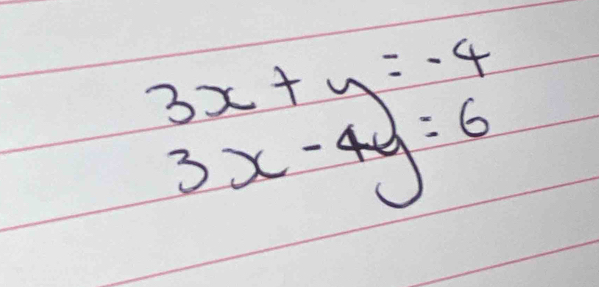 3x + y = -4
3x - 4y = 6